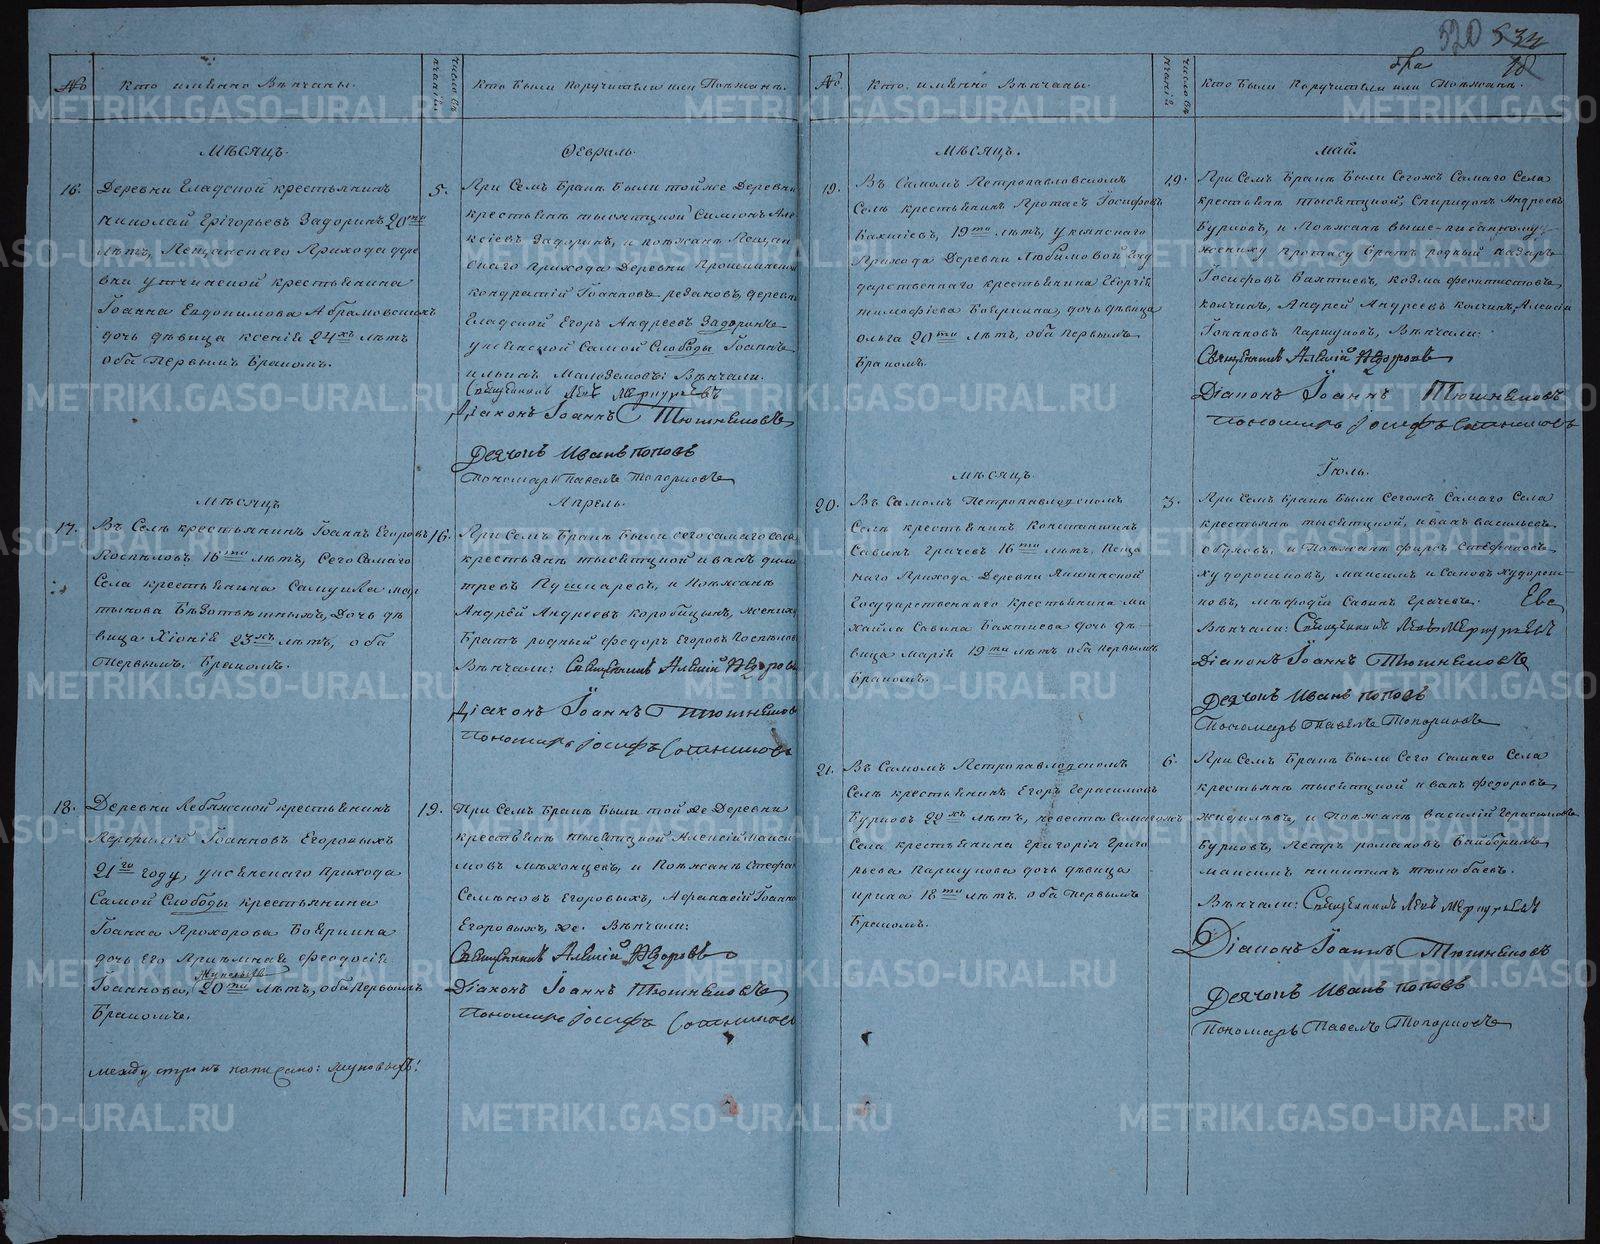 520 534
бра 18
№ Кто именно Вѣнчаны. число вѣнчаній Кто были поручители или Поѣжане.
Мѣсяцъ. Февраль.
16. Деревни Гладской крестьянинъ
Николай Григорьевъ Задоринъ 20ти
лѣтъ, Пещанскаго Прихода дере
вни Утчинской крестьянина
Іоанна Евдокимова Абрамовскихъ
дочь дѣвица Ксенія 24хъ лѣтъ
оба Первымъ Бракомъ.
5. При Семъ Бракѣ Были тойже Деревни
крестьяне тысятцкой Симіонъ Але
ксіевъ Задоринъ, и поѣжане Пещан
скаго прихода Деревни
кондратій Іоанновъ Резановъ, деревни
Гладской Егоръ Андреевъ Задоринъ
успенской Самой Слободы Іоаннъ
Ильинъ Малоземовъ: Вѣнчали.
Священникъ Левъ Меркурьевъ
Діаконъ Іоаннъ Тюшняковъ
Дьячокъ Иванъ Поповъ
Пономарь Павелъ Топорковъ
Мѣсяцъ Апрель.
17. Въ Селѣ крестьянинъ Іоаннъ Егоровъ
Поспѣловъ 18ти лѣтъ, Сего Самаго
Села крестьянина Самуила Мар
тынова Безотвѣтныхъ, Дочь дѣ
вица Хіонія 23хъ лѣтъ, оба
Первымъ Бракомъ.
16. При Семъ Бракѣ Были сего самаго Села
крестьяне тысятцкой Иванъ Дими
тревъ Пушкаревъ, и Поѣжане
Андрей Андреевъ Коробицынъ, жениху
Братъ родный Федоръ Егоровъ Поспѣловъ
Вѣнчали: Священникъ Алексій
Діаконъ Іоаннъ Тюшняковъ
Пономарь Іосифъ Сотниковъ
18. Деревни Лебяжской крестьянинъ
Порфирій Іоанновъ Егоровыхъ
21го году, успенскаго Прихода
Самой Слободы крестьянина
Іоанна Прохорова Бояркина
дочь Его Пріемная Феодосія
Жуковыхъ
Іоаннова, 20ти лѣтъ, оба Первымъ
Бракомъ.
между строкъ написано: Жуковыхъ!
19. При Семъ Бракѣ Были той же Деревни
крестьяне тысятцкой Алексій Макси
мовъ Мѣхонцевъ, и Поѣжане Стефанъ
Семеновъ Егоровыхъ, Афанасій Іоанно
Егоровыхъ, же. Вѣнчали:
Священникъ Алексій
Діаконъ Іоаннъ Тюшняковъ
Пономарь Іосифъ Сотниковъ
№ Кто именно Вѣнчаны. число вѣнчаній Кто были Поручители или Поѣжане.
Мѣсяцъ. май.
19. Въ Самомъ Петропавловскомъ
Селѣ крестьянинъ Протасъ Іосифовъ
Бахтіевъ, 19ти лѣтъ, Укянскаго
Прихода Деревни Любимовой Госу
дарственнаго крестьянина Георгія
Тимофіева Бояркина, дочь дѣвица
Ольга 20ти лѣтъ, оба первымъ
Бракомъ.
19. При Семъ Бракѣ Были Сегожъ Самаго Села
крестьяне тысятцкой, Спиридонъ Андреевъ
Бурковъ, и Поѣжане выше-писанному
жениху Протасу Братъ родный Назаръ
Іосифовъ Бахтіевъ, козма феоктистовъ
колчинъ, Андрей Андреевъ колчинъ, Алексій
Іоанновъ Паршуковъ, Вѣнчали:
Священникъ Алексій
Діаконъ Іоаннъ Тюшняковъ
Пономарь Іосифъ Сотниковъ
Мѣсяцъ. Іюль.
20. Въ Самомъ Петропавловскомъ
Селѣ крестьянинъ Константинъ
Савинъ Грачевъ 18ти лѣтъ, Пеща
наго Прихода Деревни Якшинской
Государственнаго крестьянина Ми
хайла Савина Бахтиева дочь дѣ-
вица Марія 19ти лѣтъ оба первымъ
Бракомъ.
3. При Семъ Бракѣ Были Сегожъ Самаго Села
крестьяне тысятцкой, иванъ васильевъ
Обуховъ, и Поѣжане фирсъ Стефановъ
Худорошковъ, максимъ Исаковъ худорош-
ковъ, Мѣфодій Савинъ Грачевъ.
Вѣнчали: Священникъ Левъ Меркурьевъ
Діаконъ Іоаннъ Тюшняковъ
Дьячокъ Иванъ Поповъ
Пономарь Павелъ Топорковъ
21. Въ Самомъ Петропавловскомъ
Селѣ крестьянинъ Егоръ Герасимовъ
Бурковъ 22хъ лѣтъ, невеста Самагожъ
Села крестьянина Григорія Григо
рьева Паршукова дочь дѣвица
ирина 18ти лѣтъ, оба первымъ
Бракомъ.
6. При Семъ Бракѣ Были Сего Самаго Села
крестьяне тысятцкой Иванъ Федоровъ
и Поѣжане Василій Герасимовъ
Бурковъ, Петръ романовъ Байборинъ
максимъ никитинъ тюлюбаевъ.
Вѣнчали: Священникъ Левъ Меркурьевъ
Діаконъ Іоаннъ Тюшняковъ
Дьячокъ Иванъ Поповъ
Пономарь Павелъ Топорковъ
METRIKI.GASO-URAL.RU